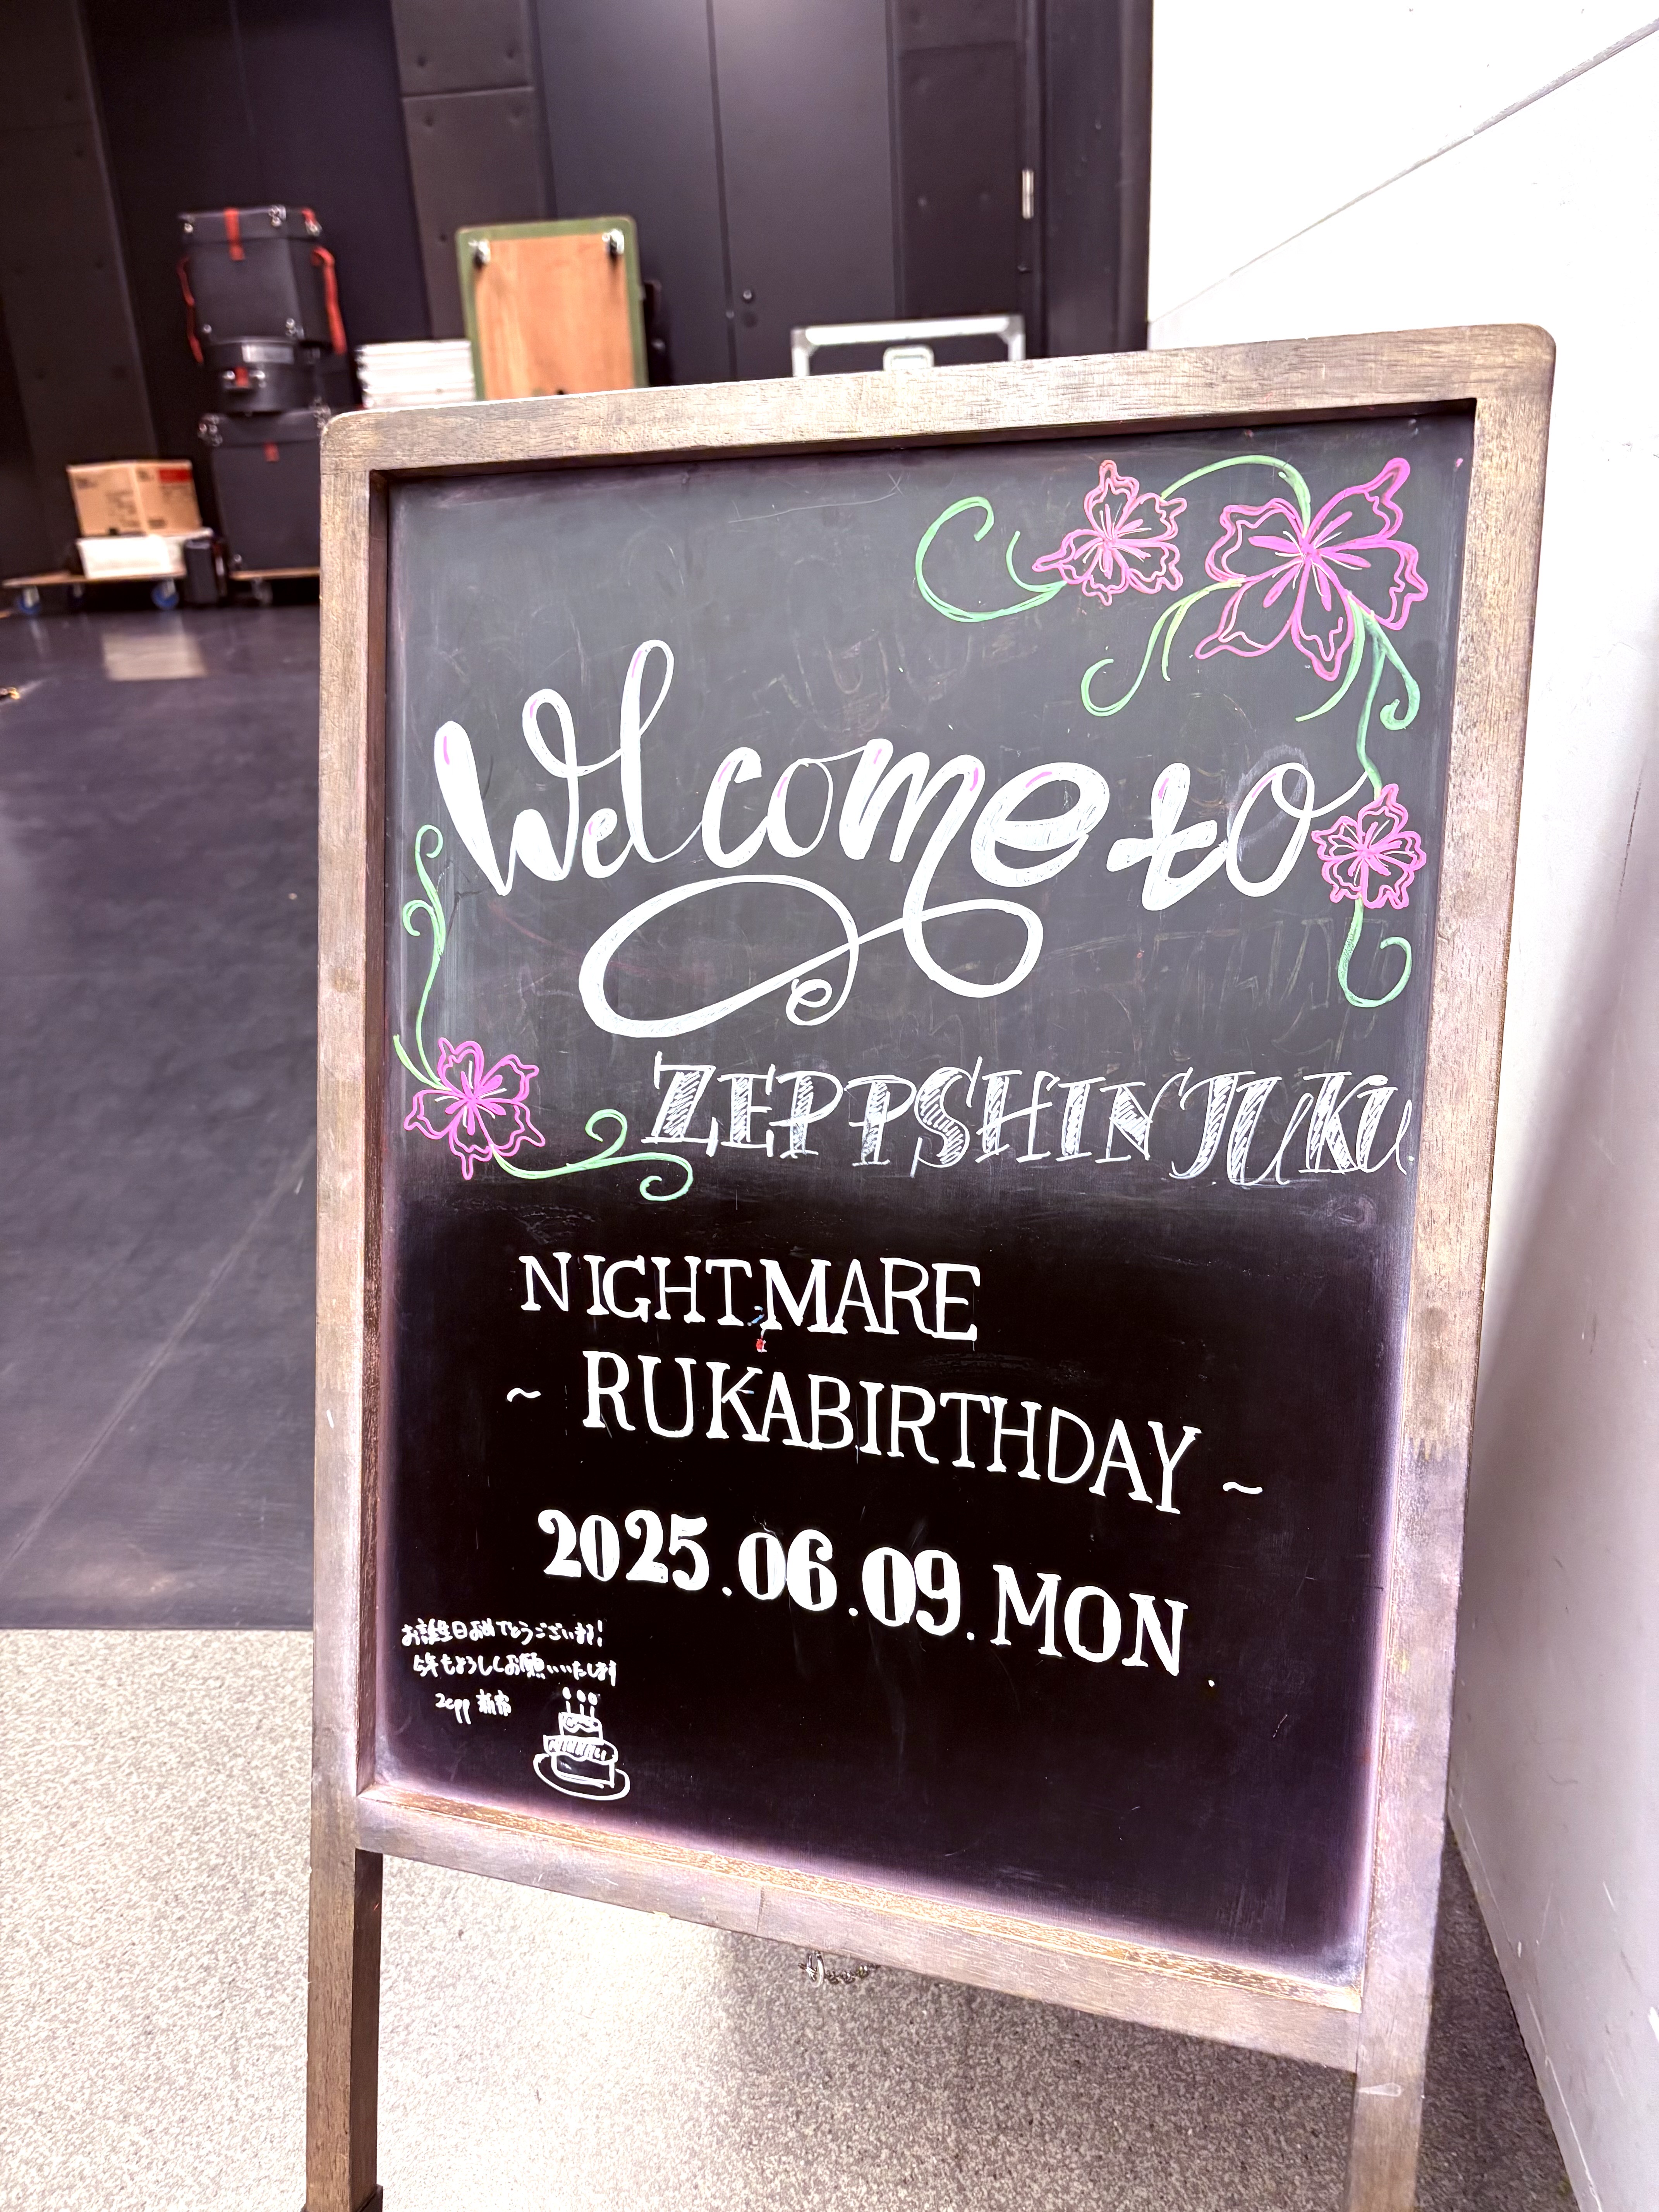 Welcome to
ZEPP SHINJUKU
NIGHTMARE
~ RUKA BIRTHDAY ~
2025.06.09.MON.
お誕生日おめでとうございます!
今年もよろしくお願いいたします
Zepp 新宿